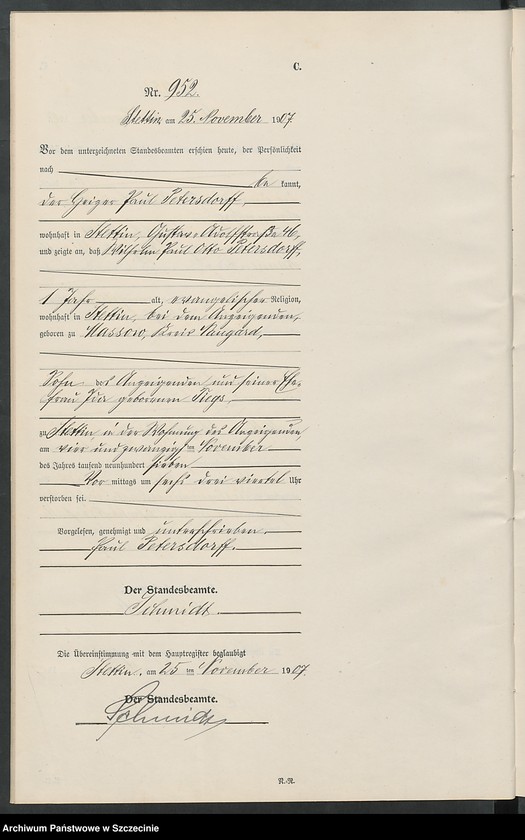 C.
Nr. 952.
Stettin am 25. November 1907.
Vor dem unterzeichneten Standesbeamten erschien heute, der Persönlichkeit
nach
be kannt,
der Geiger Paul Petersdorff,
wohnhaft in Stettin, Gustav Adolfstraße 46,
und zeigte an, daß Wilhelm Paul Otto Petersdorff,
1 Jahr alt, evangelischer Religion,
wohnhaft in Stettin, bei dem Anzeigenden,
geboren zu Massow, Kreis Naugard,
Sohn des Anzeigenden und seiner Ehe-
frau Ida geborenen
zu Stettin, in der Wohnung des Anzeigenden,
am vier und zwanzigsten November
des Jahres tausend neunhundert sieben
Vor mittags um sechs drei viertel Uhr
verstorben sei.
Vorgelesen, genehmigt und unterschrieben.
Paul Petersdorff.
Der Standesbeamte.
Schmidt.
Die Übereinstimmung mit dem Hauptregister beglaubigt
Stettin, am 25 ten November 1907.
Der Standesbeamte.
Schmidt
R.-R.
Archiwum Państwowe w Szczecinie